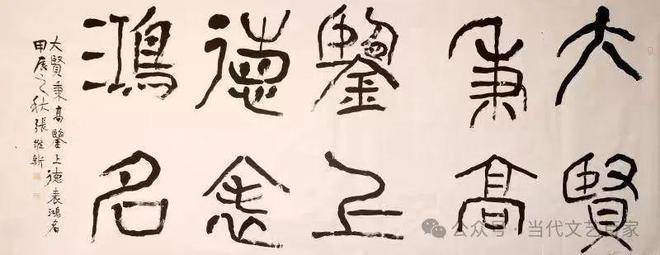 大賢
秉高
鑒上
德表
鴻名
大賢秉高鑒上德表鴻名
甲辰之秋張維新
公众号·当代文艺百家